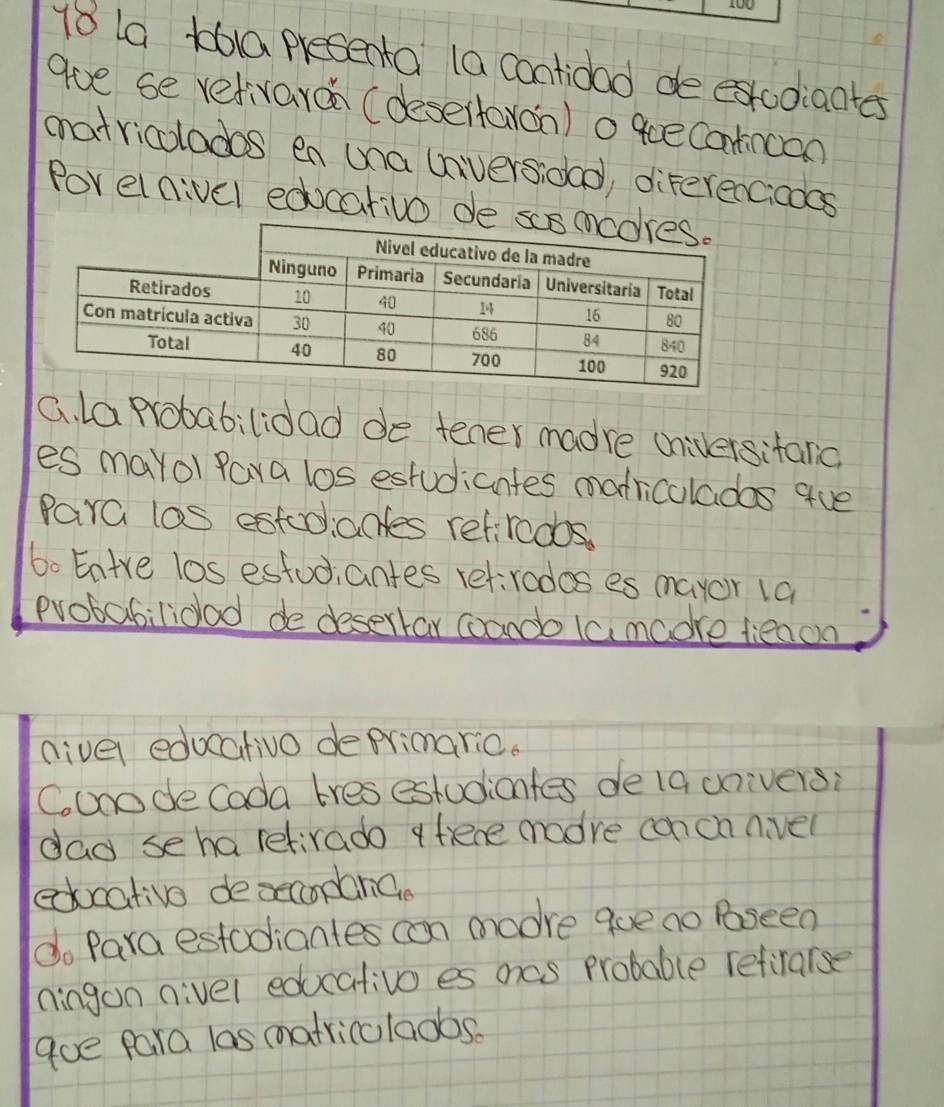 100
18 la tabla presenta la cantidad de estudiantes
que se retiraron (desertarón) o que continuan
matriculados en una universidad, diferenciados
Por el nivel educativo de sus madres.
Nivel educativo de la madre
Ninguno Primaria Secundaria Universitaria Total
Retirados 10 40 14 16 80
Con matrícula activa 30 40 686 84 840
Total 40 80 700 100 920
a. La Probabilidad de tener madre universitaria
es mayor Para los estudiantes matriculados que
Para los estudiantes retirados.
b. Entre los estudiantes retirados es mayor la
probabilidad de desertar cuando la madre tiene un
nivel educativo de primaria.
C. uno de cada tres estudiantes de la universi
dad se ha retirado y tiene madre con un nivel
educativo de secundaria.
d. Para estudiantes con madre que no Poseen
ningun nivel educativo es mas probable retirarse
que para las matriculados.